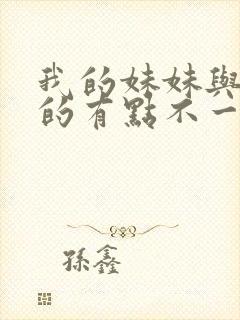 我的妹妹與
的有點不一
孫鑫